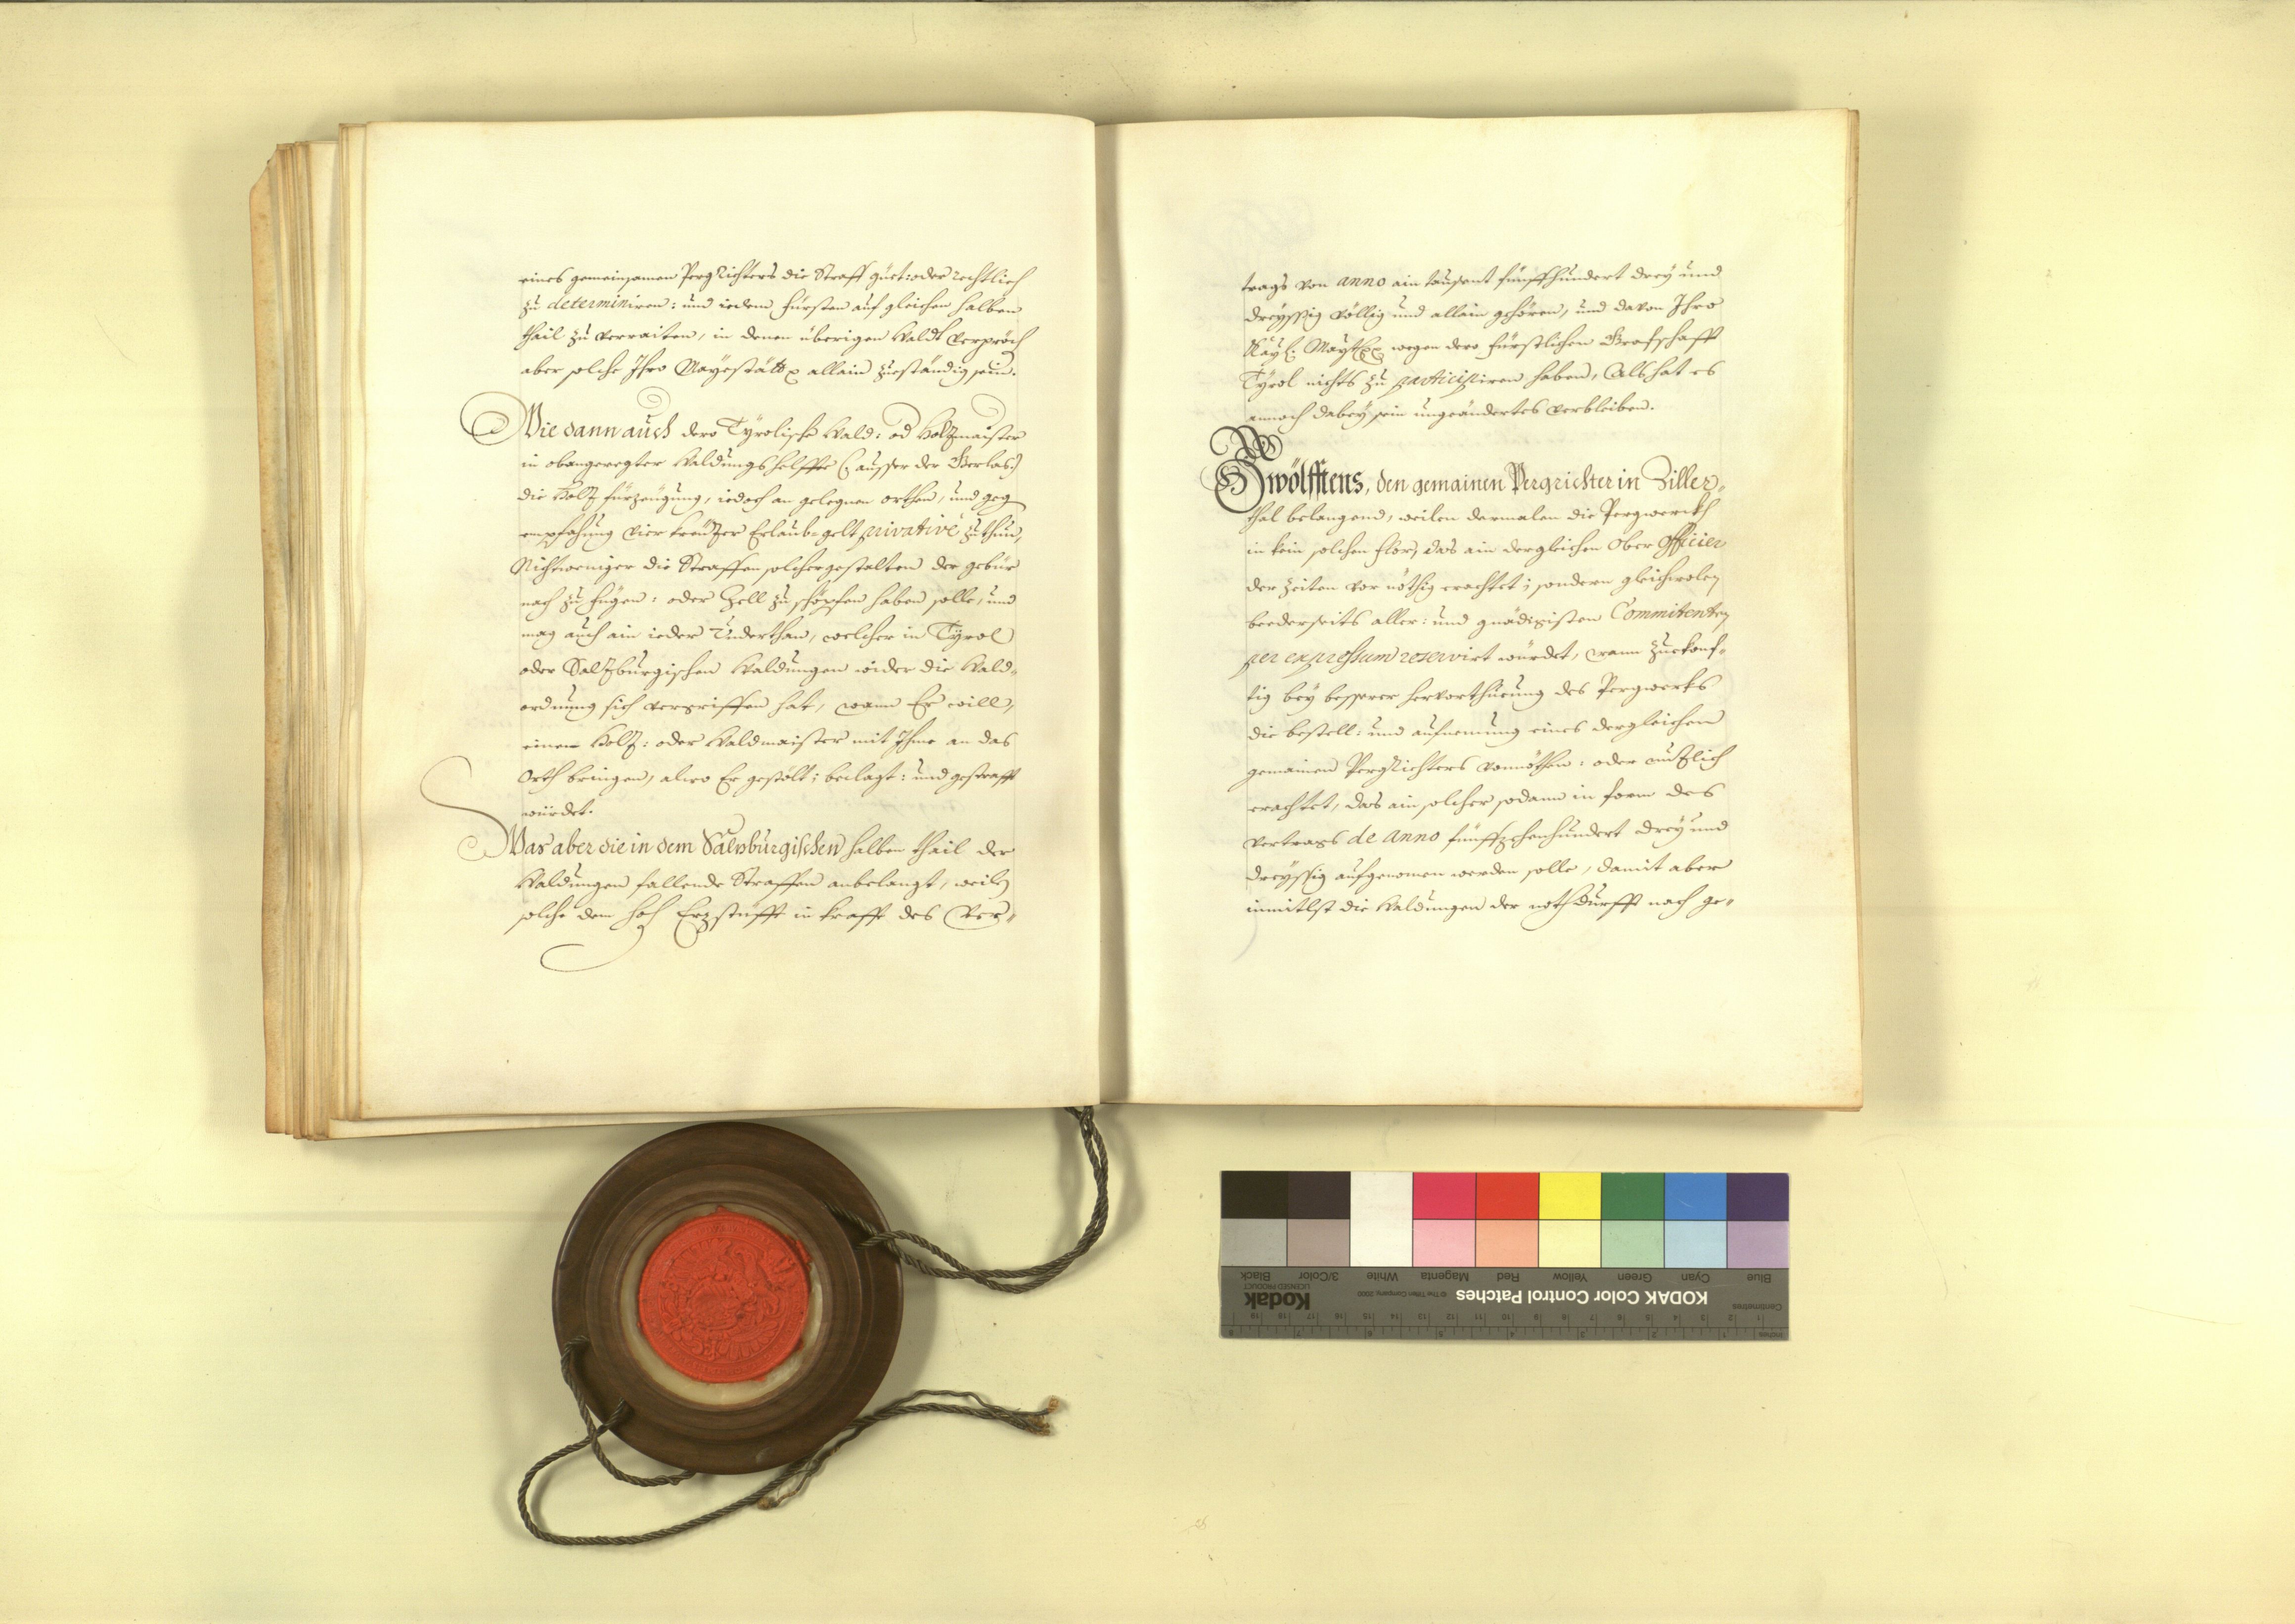 eines gemeinsamen PergRichters die Straff güet: oder rechtlich
zu determiniren: und iedem Fürsten auf gleichen halben
thail zu verraiten, in denen überigen Waldt verpröch
aber solche Ihro Mayestätt allain zueständig sein.
Wie dann auch dero Tyrolische Wald: od Holzmaister
in obangeregter Waldungs helffte (ausser der Gerlos)
die Holz fürzaigung, iedoch an gelegnen orthen, und geg
empfahung vier kreüzer Erlaub-gelt privativè zuthun,
Nichtweniger die Straffen solchergestalten der gebür
nach zu Fügen: oder Zell zu schöpfen haben solle, und
mag auch ain ieder Underthan, welcher in Tyrol
oder Salzburgischen Waldungen wider die Wald-
ordnung sich vergriffen hat, wann Er will,
einen Holz: oder Waldmaister mit Ihme an das
Orth bringen, alwo Er gestölt: beclagt: und gestrafft
würdet.
Was aber die in dem Salzburgischen halben thail der
Waldungen fallende Straffen anbelangt, weiln
solche dem hoh Erzstüfft in krafft des Ver-
trags von anno ain tausent fünffhundert drey und
dreyssig völlig und allain gehören, und davon Ihro
Kays: Mayt wegen dero Fürstlichen Grafschafft
Tyrol nichts zu participiren haben, Als hat es
annoch dabey sein ungeändertes verbleiben.
Zwölfftens, den gemainen Pergrichter in Ziller-
thal belangend, weilen dermalen die Pergwerckh
in kein solchen flor, das ain dergleichen Ober Officier
der zeiten vor nöthig erachtet; sondern gleichwolen
beederseits aller: und gnädigisten Commitenten
per expressum reservirt würdet, wann zuekonf-
tig bey besserer hervorthueung des Pergwerks
die bestell: und aufnemung eines dergleichen
gemainen PergRichters vonnöthen: oder nuzlich
erachtet, das ain solcher sodann in form des
vertrags de anno fünffzehenhundert drey und
dreyssig aufgenomen werden solle, damit aber
inmitlst die Waldungen der nothdurfft nach ge-
Blue
Cyan
Green
Yellow
Red
Magenta
White
3/Color
Black
KODAK Color Control Patches
© The Tiffen Company, 2000
Kodak
LICENSED PRODUCT
Centimetres
Inches